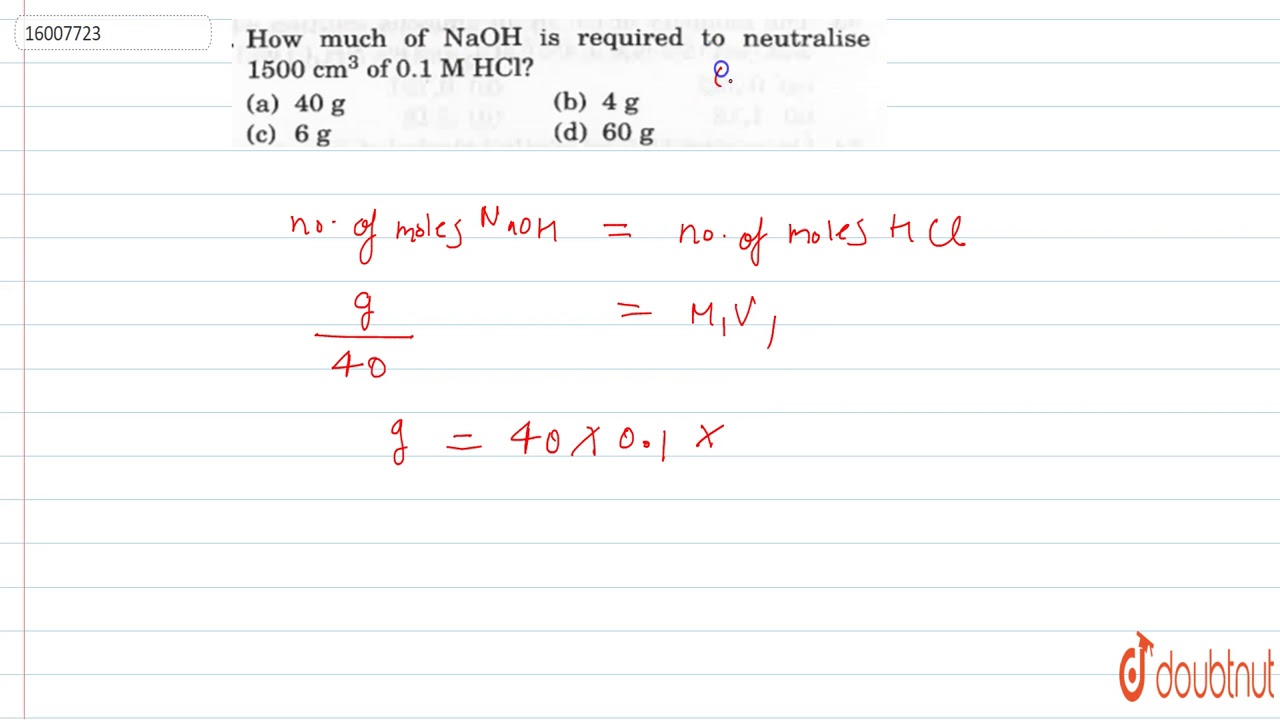 16007723
. How much of NaOH is required to neutralise
1500 cm³ of 0.1 M HCl?
(a) 40 g (b) 4 g
(c) 6 g (d) 60 g
no. of moles NaOH = no. of moles HCl
g/40 = M₁V₁
g = 40 × 0.1 ×
doubtnut